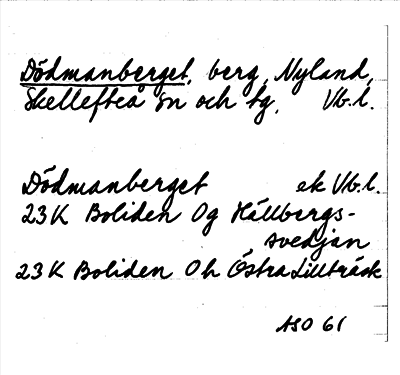 Dödmanberget, berg, Nyland,
Skellefteå sn och tg. Vb.l.
Dödmanberget ek Vb.l.
23K Boliden 0g Hällbergs-
svedjan
23K Boliden 0h Östra Lillträsk
ASO 61